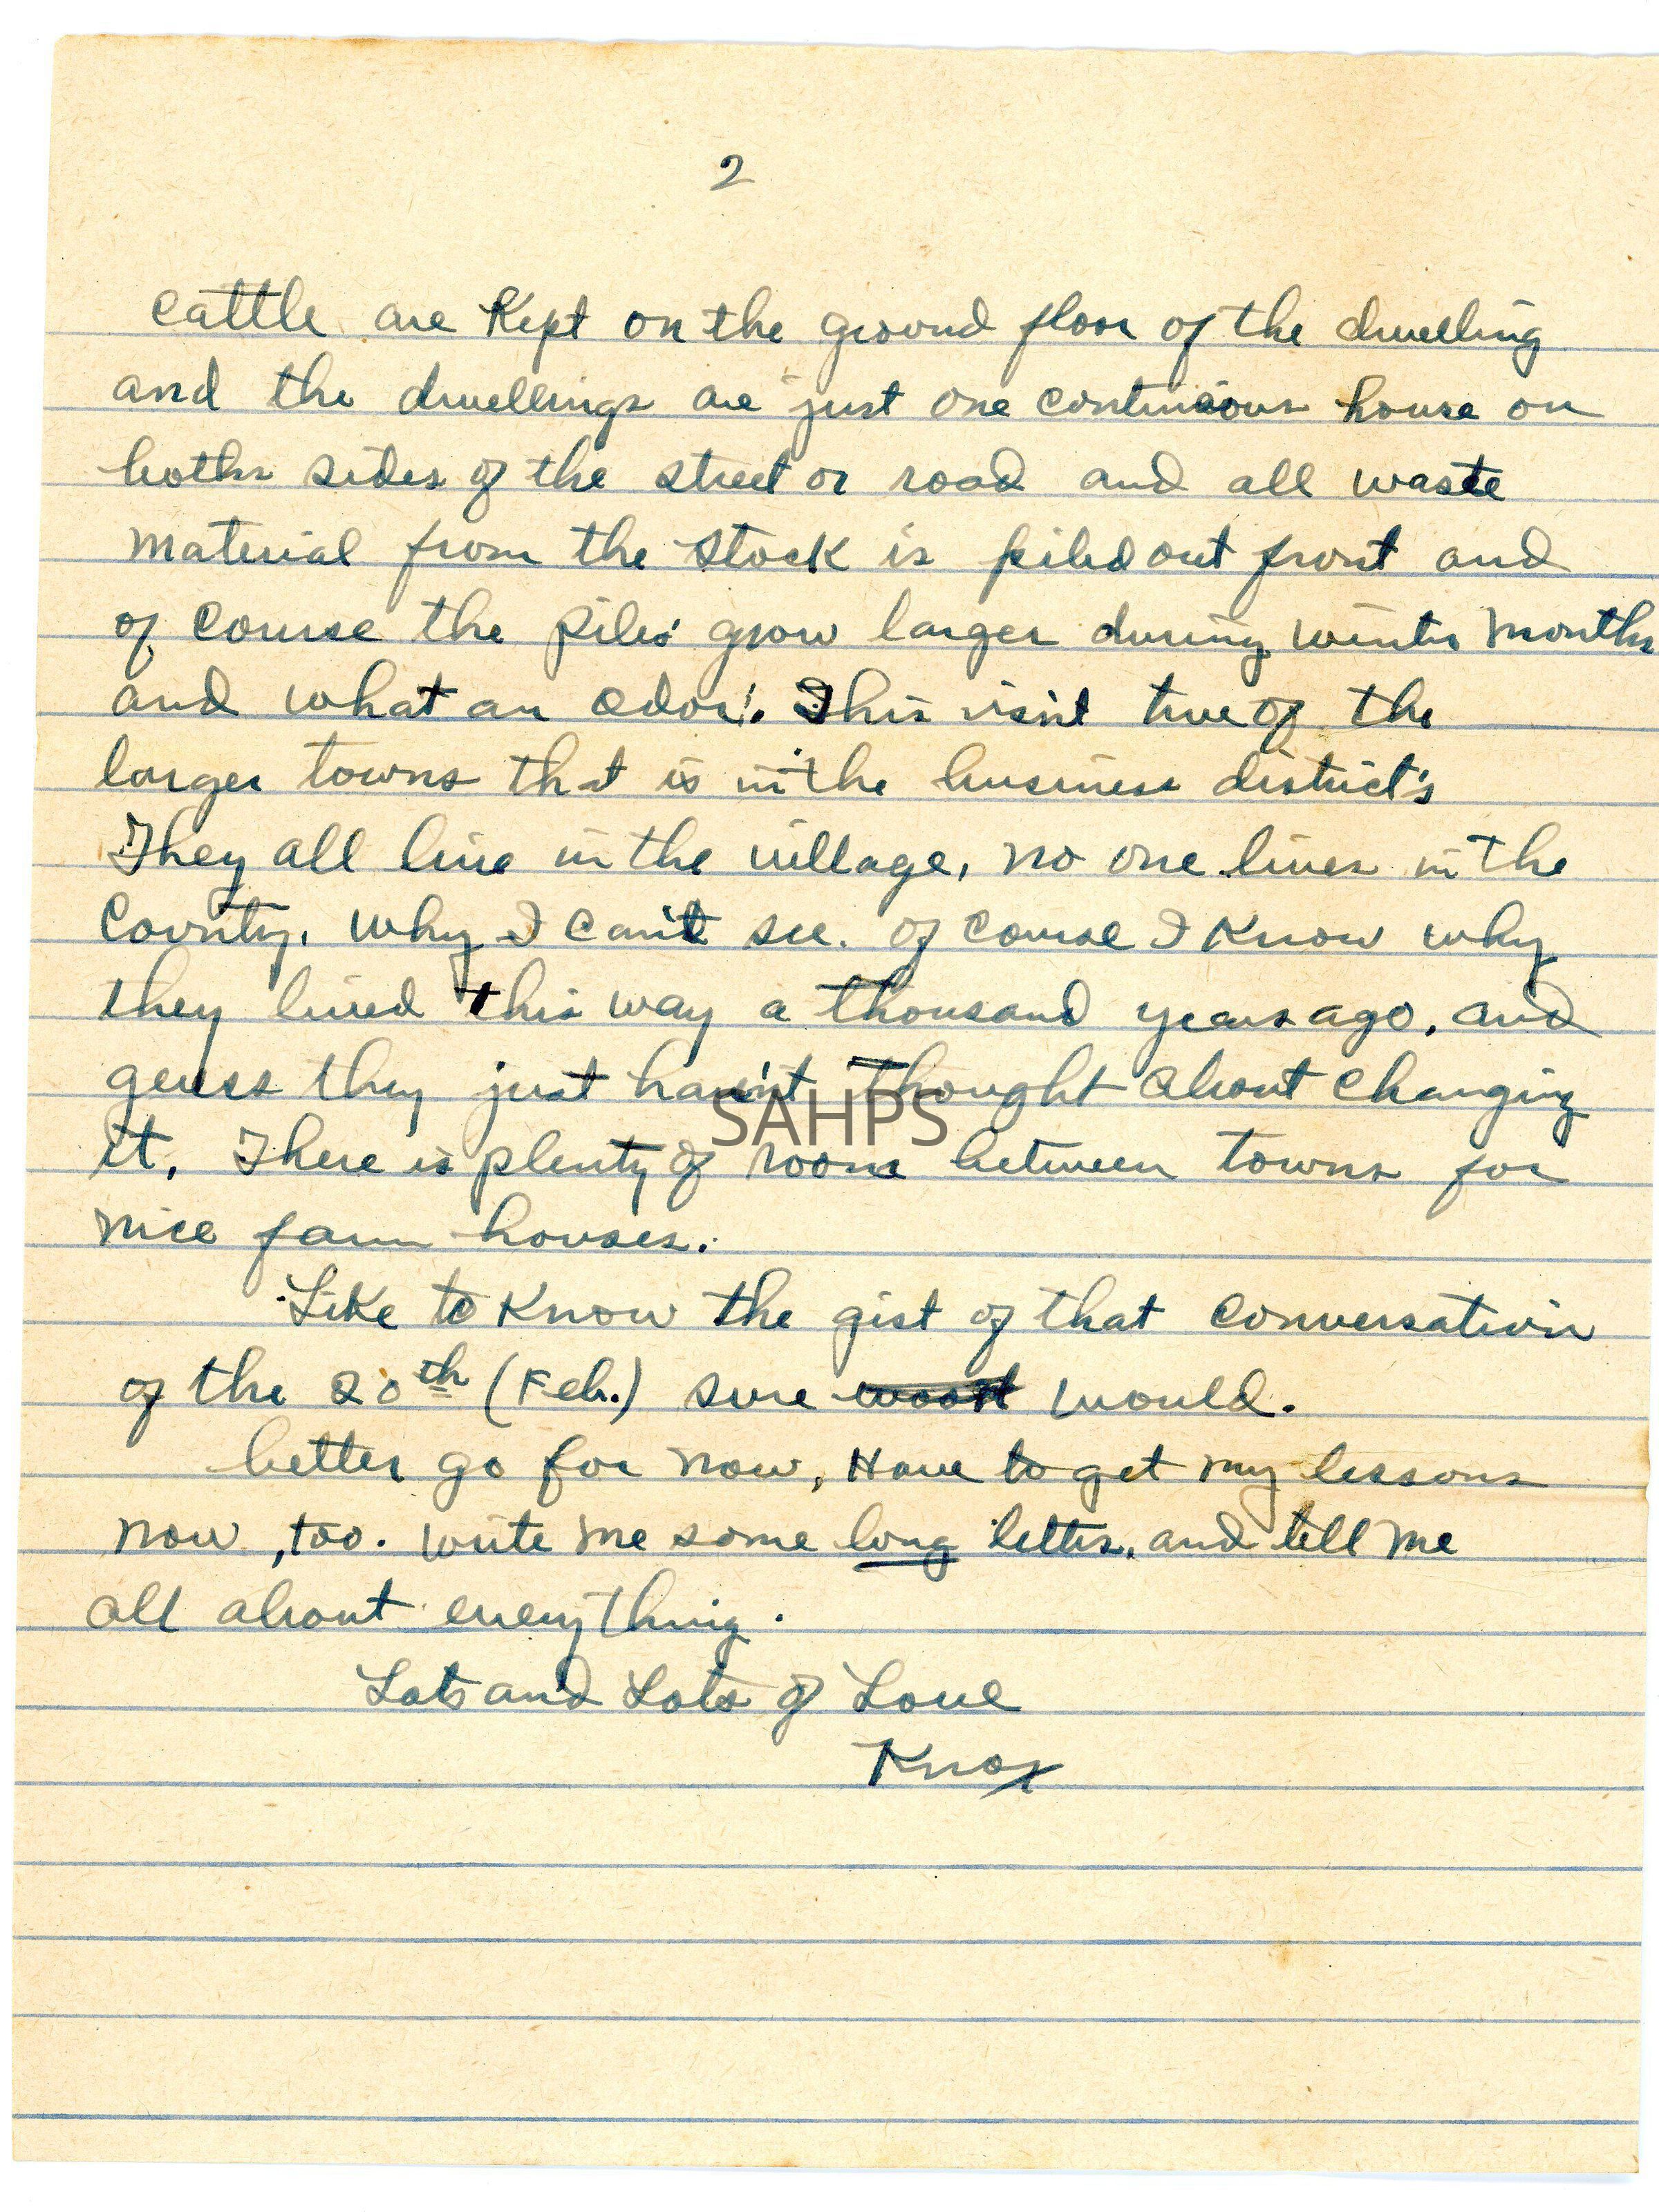 2
cattle are Kept on the ground floor of the dwelling
and the dwellings are just one continuous house on
boths sides of the street or road and all waste
material from the stock is piled out front and
of course the piles grow larger during winter months
and what an odor!. This isn't true of the
larger towns that is in the business district's
They all live in the village, no one lives in the
County. Why I can't see. Of course I Know why
they lived this way a thousand years ago, and
geuss they just hav'nt thought about changing
SAHPS
it. There is plenty of room between towns for
nice farm houses.
Like to Know the gist of that conversation
of the 20th (Feb.) sure would.
better go for now, Have to get my lessons
now, too. Write me some long letters, and tell me
all about everything.
Lots and Lots of Love
Knox